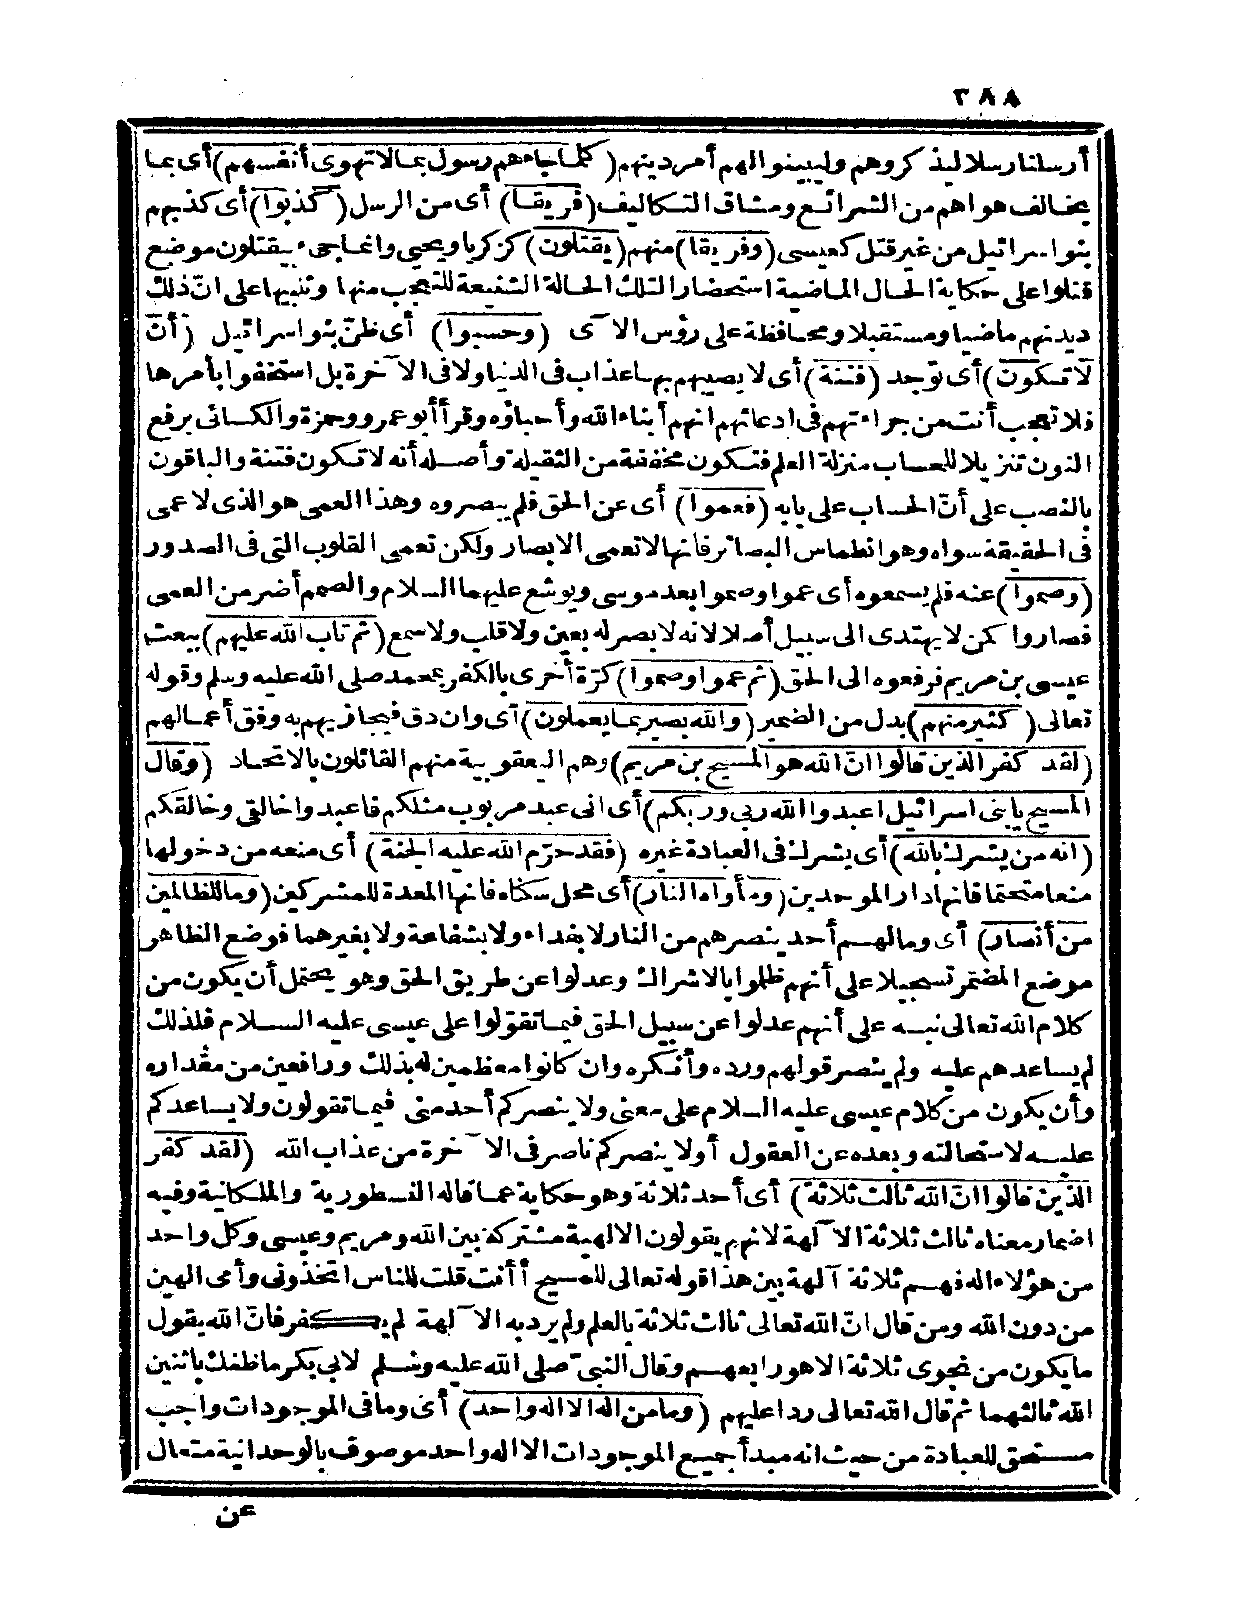 ٣٨٨
أرسلنا رسلا ليذكروهم وليبينوا لهم أمر دينهم (كلما جاءهم رسول بما لا تهوى أنفسهم) أى بما
يخالف هواهم من الشرائع ومشاق التكاليف (فريقا) أى من الرسل (كذبوا) أى كذبهم
بنو اسرائيل من غير قتل كعيسى (وفريقا) منهم (يقتلون) كزكريا ويحيى وانما جىء بيقتلون موضع
قتلوا على حكاية الحال الماضية استحضارا لتلك الحالة الشنيعة للتعجب منها وتنبيها على انّ ذلك
ديدنهم ماضيا ومستقبلا ومحافظة على رؤس الآى (وحسبوا) أى ظنّ بنو اسرائيل (أن
لا تكون) أى توجد (فتنة) أى لا يصيبهم بها عذاب فى الدنيا ولا فى الآخرة بل استخفوا بأمرها
فلا تعجب أنت من جراءتهم فى ادعائهم انهم أبناء الله وأحباؤه وقرأ أبو عمرو وحمزة والكسائى برفع
النون تنزيلا للحساب منزلة العلم فتكون مخففة من الثقيلة وأصله أنه لا تكون فتنة والباقون
بالنصب على أنّ الحساب على بابه (فعموا) أى عن الحق فلم يبصروه وهذا العمى هو الذى لا عمى
فى الحقيقة سواه وهو انطماس البصائر فانها لا تعمى الابصار ولكن تعمى القلوب التى فى الصدور
(وصموا) عنه فلم يسمعوه أى عموا وصموا بعد موسى ويوشع عليهما السلام والصمم أضر من العمى
فصاروا كمن لا يهتدى الى سبيل أصلا لانه لا بصر له بعين ولا قلب ولا سمع (ثم تاب الله عليهم) ببعث
عيسى بن مريم فرفعوه الى الحق (ثم عموا وصموا) كرّة أخرى بالكفر بمحمد صلى الله عليه وسلم وقوله
تعالى (كثير منهم) بدل من الضمير (والله بصير بما يعملون) أى وان دق فيجازيهم به وفق أعمالهم
(لقد كفر الذين قالوا انّ الله هو المسيح بن مريم) وهم اليعقوبية منهم القائلون بالاتحاد (وقال
المسيح يا بنى اسرائيل اعبدوا الله ربى وربكم) أى انى عبد مربوب مثلكم فاعبدوا خالقى وخالقكم
(انه من يشرك بالله) أى يشرك فى العبادة غيره (فقد حرّم الله عليه الجنة) أى منعه من دخولها
منعا متحتما فانها دار الموحدين (ومأواه النار) أى محل سكناه فانها المعدة للمشركين (وما للظالمين
من أنصار) أى وما لهم أحد ينصرهم من النار لا بفداء ولا بشفاعة ولا بغيرهما فوضع الظاهر
موضع المضمر تسجيلا على أنهم ظلموا بالاشراك وعدلوا عن طريق الحق وهو يحتمل أن يكون من
كلام الله تعالى نبه على أنهم عدلوا عن سبيل الحق فيما تقولوا على عيسى عليه السلام فلذلك
لم يساعدهم عليه ولم ينصر قولهم ورده وأنكره وان كانوا معظمين له بذلك ورافعين من مقداره
وأن يكون من كلام عيسى عليه السلام على معنى ولا ينصركم أحد منى فيما تقولون ولا يساعدكم
عليه لاستحالته وبعده عن العقول أو لا ينصركم ناصر فى الآخرة من عذاب الله (لقد كفر
الذين قالوا انّ الله ثالث ثلاثة) أى أحد ثلاثة وهو حكاية عما قاله النسطورية والملكانية وفيه
اضمار معناه ثالث ثلاثة الآلهة لانهم يقولون الالهية مشتركة بين الله ومريم وعيسى وكل واحد
من هؤلاء اله فهم ثلاثة آلهة بين هذا قوله تعالى للمسيح أأنت قلت للناس اتخذونى وأمى الهين
من دون الله ومن قال انّ الله تعالى ثالث ثلاثة بالعلم ولم يرد به الآلهة لم يكفر فانّ الله يقول
ما يكون من نجوى ثلاثة الا هو رابعهم وقال النبىّ صلى الله عليه وسلم لابى بكر ما ظنك باثنين
الله ثالثهما ثم قال الله تعالى ردا عليهم (وما من اله الا اله واحد) أى وما فى الموجودات واجب
مستحق للعبادة من حيث انه مبدأ جميع الموجودات الا اله واحد موصوف بالوحدانية متعال
عن